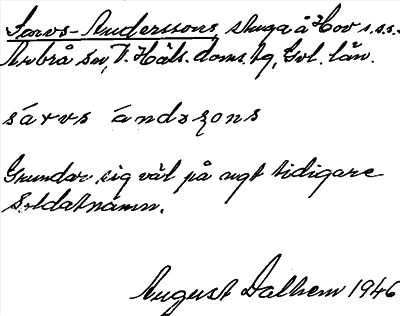 Sarvs-Anderssons stuga å Hov s.s.s.
Arbrå sn, V. Häls. doms. hg, Gvl. län.
sárvs ándaşons
Grundar sig väl på ngt tidigare
soldatnamn.
August Dalhem 1946